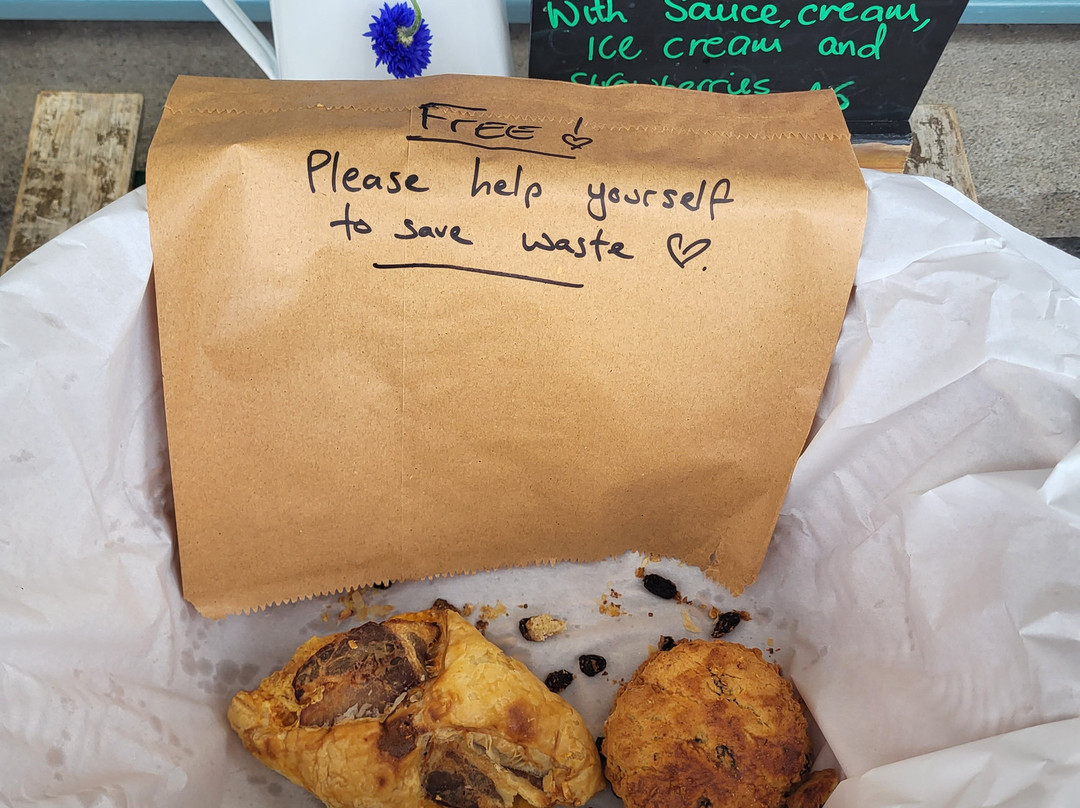 With Sauce, cream,
Ice cream and
Strawberries
Free!
Please help yourself
to save waste